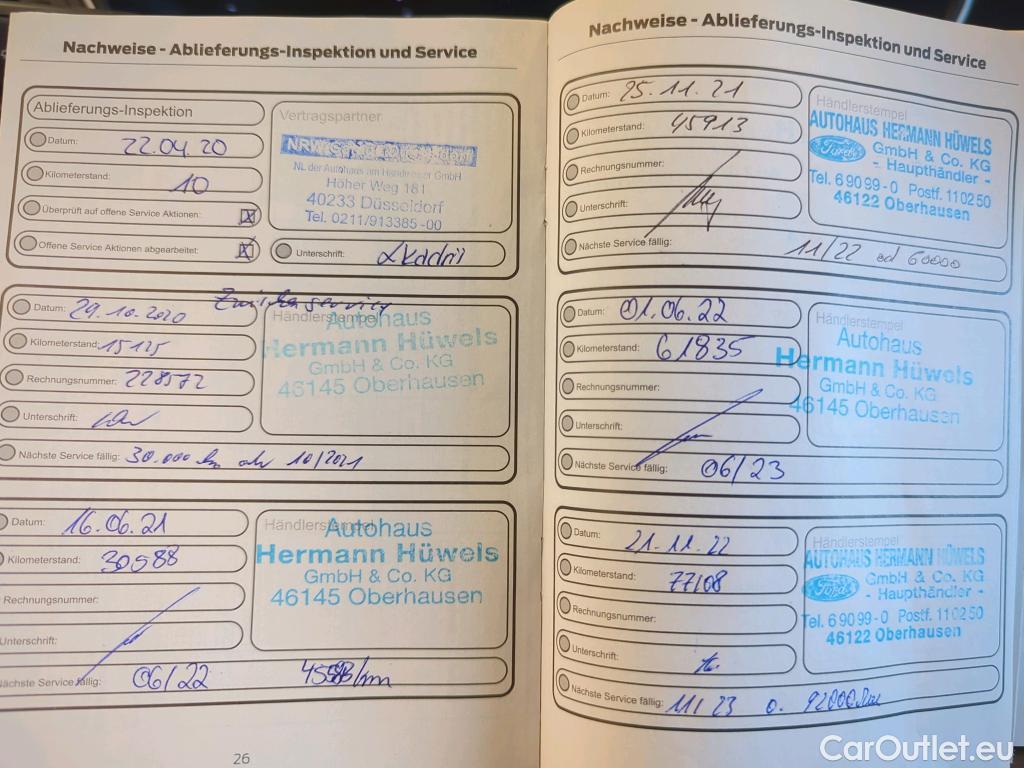 Nachweise - Ablieferungs-Inspektion und Service
Ablieferungs-Inspektion
Datum: 22.04.20
Kilometerstand: 10
Überprüft auf offene Service Aktionen: X
Offene Service Aktionen abgearbeitet: X
Vertragspartner
NL der Autohaus am Handelshof GmbH
Höher Weg 181
40233 Düsseldorf
Tel. 0211/913385-00
Unterschrift:
Zwischenservice
Datum: 29.10.2020
Kilometerstand: 15125
Rechnungsnummer: 228572
Unterschrift:
Nächste Service fällig: 30.000 km odr 10/2021
Händlerstempel
Autohaus
Hermann Hüwels
GmbH & Co. KG
46145 Oberhausen
Datum: 16.06.21
Kilometerstand: 30588
Rechnungsnummer:
Unterschrift:
Nächste Service fällig: 06/22
Händlerstempel
Autohaus
Hermann Hüwels
GmbH & Co. KG
46145 Oberhausen
26
Nachweise - Ablieferungs-Inspektion und Service
Datum: 25.11.21
Kilometerstand: 45913
Rechnungsnummer:
Unterschrift:
Nächste Service fällig: 11/22 od 60000
Händlerstempel
AUTOHAUS HERMANN HÜWELS
Ford
GmbH & Co. KG
- Haupthändler -
Tel. 69099-0 Postf. 110250
46122 Oberhausen
Datum: 01.06.22
Kilometerstand: 61835
Rechnungsnummer:
Unterschrift:
Nächste Service fällig: 06/23
Händlerstempel
Autohaus
Hermann Hüwels
GmbH & Co. KG
46145 Oberhausen
Datum: 21.11.22
Kilometerstand: 77108
Rechnungsnummer:
Unterschrift:
Nächste Service fällig: 11/23 o. 92000
Händlerstempel
AUTOHAUS HERMANN HÜWELS
Ford
GmbH & Co. KG
- Haupthändler -
Tel. 69099-0 Postf. 110250
46122 Oberhausen
CarOutlet.eu